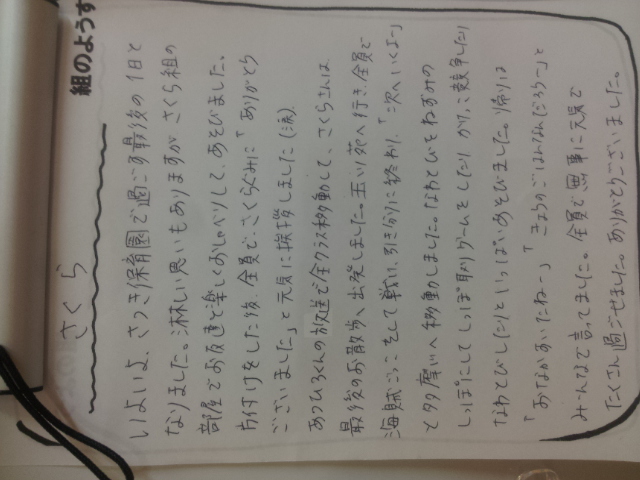 組のようす
さくら
いよいよ、さつき保育園で過ごす最後の1日と
なりました。淋しい思いもありますが さくら組の
部屋でお友達と楽しくおしゃべりして、あそびました。
片付けをした後、全員で、さくらぐみに「ありがとう
ございました」と元気に挨拶しました(涙)
あつひろくんの放送で全クラス移動して、さくらさんは
最後のお散歩へ出発しました。玉川苑へ行き、全員で
海賊ごっこをして戦い、引き分けに終わり、「次へいくよー」
と多摩川へ移動しました。なわとびをねずみの
しっぽにしてしっぽ取りゲームをしたり かけっこ競争したり
なわとびしたりといっぱいあそびました。帰りは
「おなかすいたねー」「きょうのごはんなんだろうー」と
みんなで言ってました。全員で無事に元気で
たくさん過ごせました。ありがとうございました。